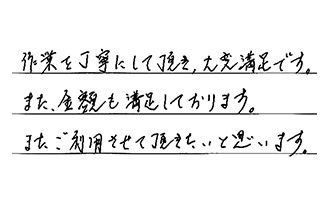 作業を丁寧にして頂き、大変満足です。
また、金額も満足しております。
またご利用させて頂きたいと思います。